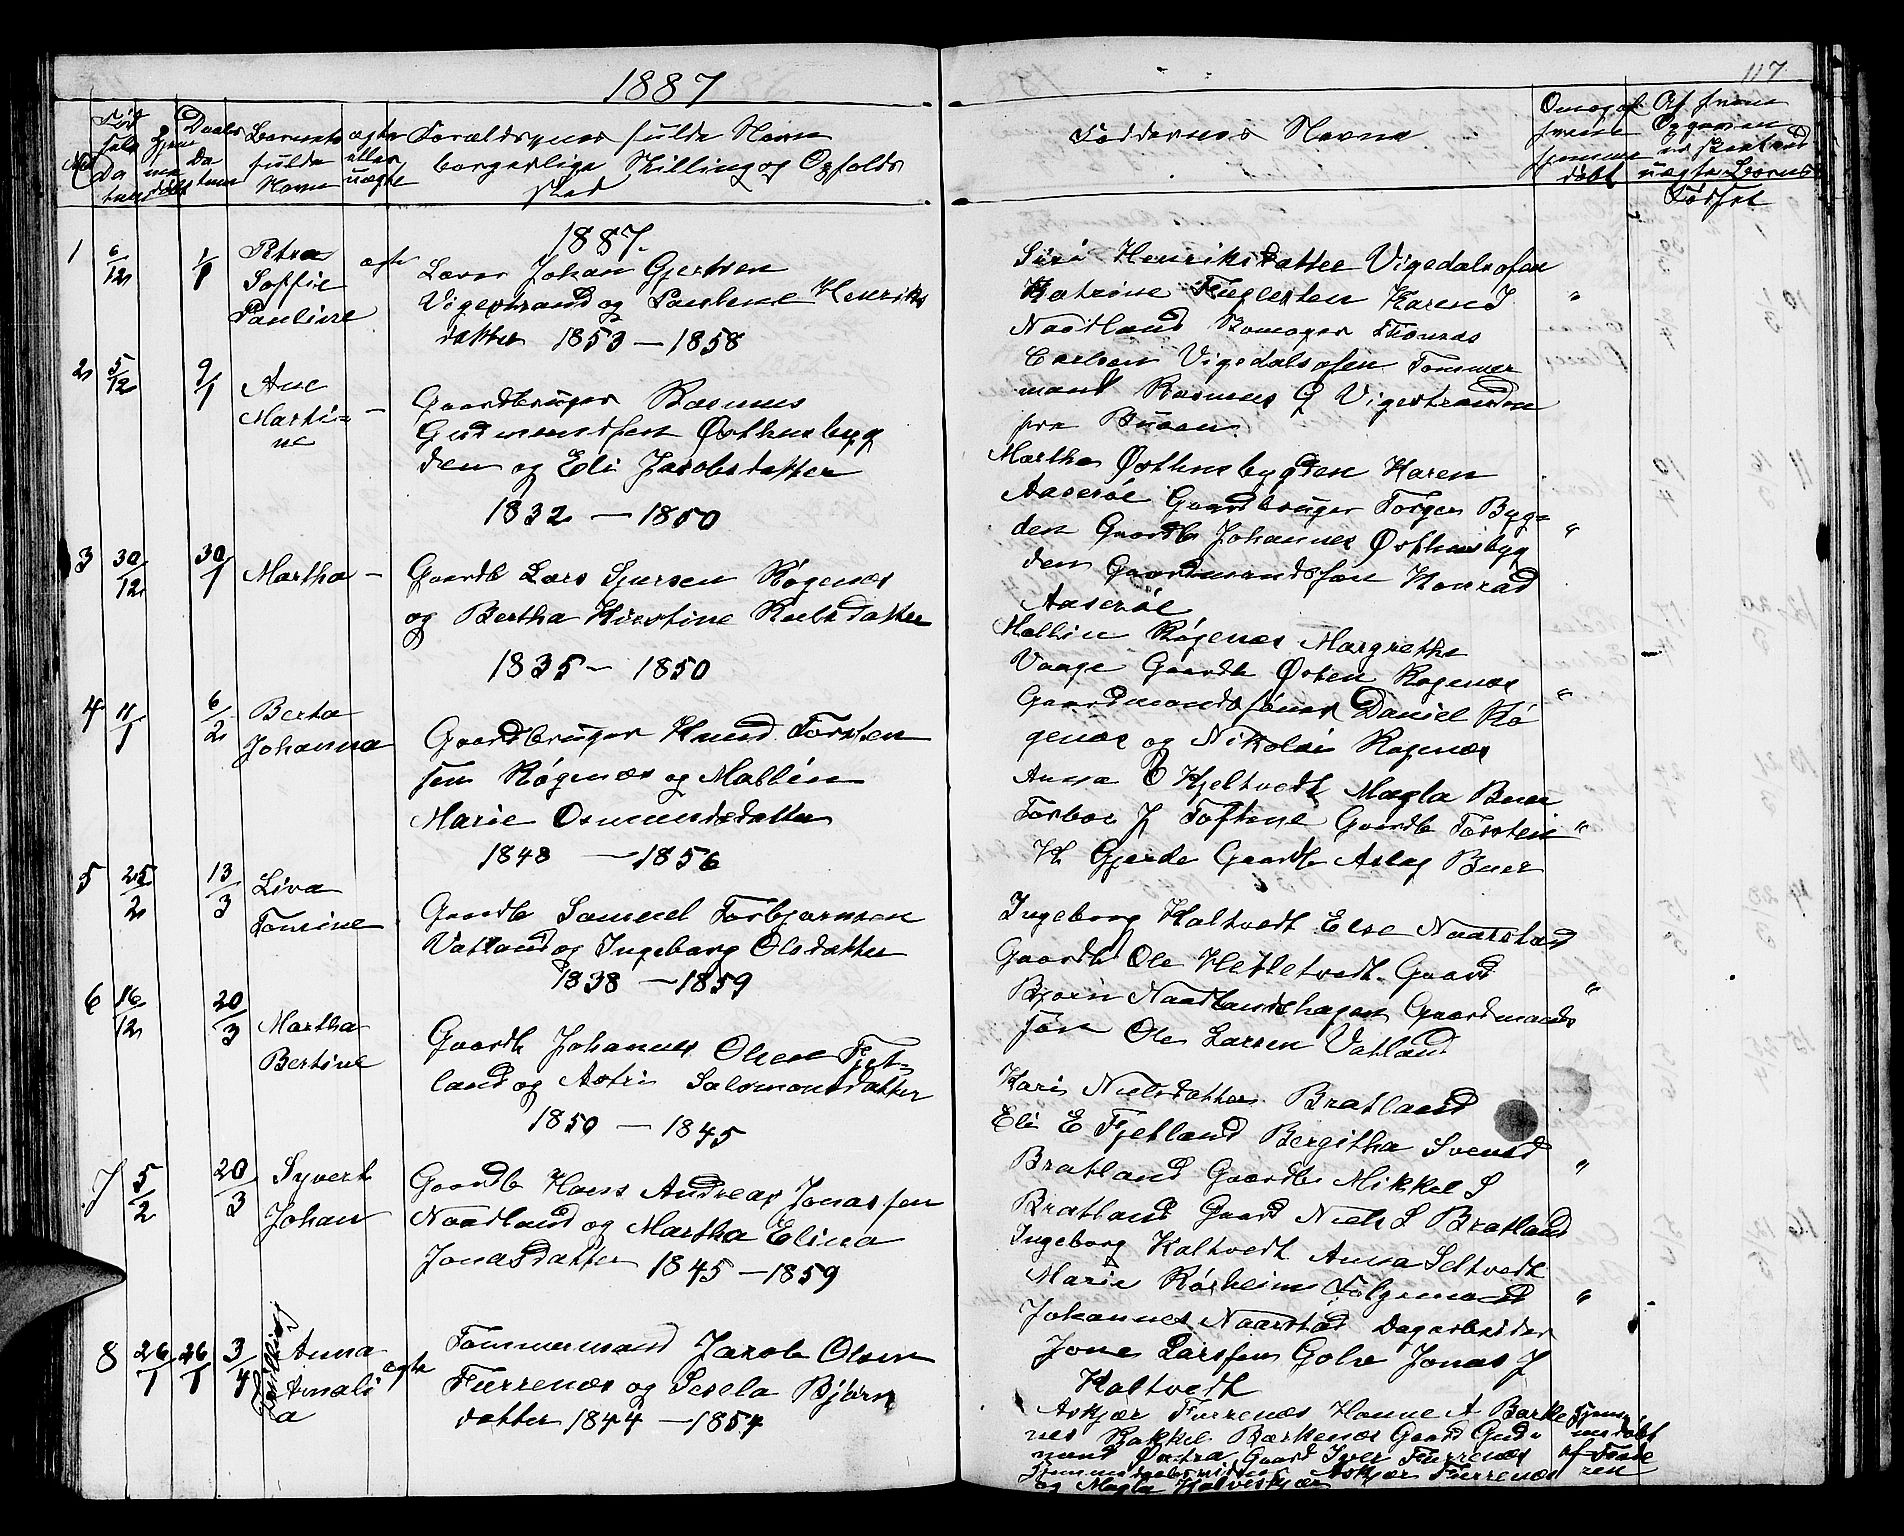 1887
117
No
Fød
sels
Da
tum
Hjem
me
døbt
Daabs
Da
tum
Barnets
fulde
Navn
ægte
eller
uægte
Forældrenes fulde Navn
borgerlige Stilling og Opholds
sted
Faddernes Navne
Om og af
hvem
hjemme
døbt
Af hvem
Opgaven
uægte Børns
Fødsel
1887.
1 6/12 1/1 Petra Soffie Pauline ægte
Johan Gjertsen
Vigestrand og Paulene Henriks
datter 1853 – 1858
Siri Henriksdatter Vigedalsosen
Katrine Fuglesten Karen J
Naadland Thomas
Carlsen Vigedalsosen Tømmer
mand Rasmus G Vigestranden
fra
"
2 5/12 9/1 Ane Martine –
Gaardbruger Rasmus
Gudmundsen Østhusbyg
den og Eli Jacobsdatter
1832 – 1850
Martha Østhusbygden Karen
Aaserøe Gaardbruger Torger Byg=
den Gaardb Johannes Østhusbyg
den Gaardmandssøn Konrad
Aaserøe
"
3 30/12 30/1 Martha –
Gaardb Lars Sjursen Røgenæs
og Bertha Kirstine datter
1835 – 1850
Mallin Røgenæs Margrethe
Vaage Gaardb Østen Røgenæs
Gaardmandssøner Daniel Rø
genæs og Nikolai Røgenæs
"
4 11/1 6/2 Berta Johanna
Gaardbruger Knud Torsten
sen Røgenæs og Mallin
Marie Osmundsdatter
1848 – 1856
Anna Kjeltvedt Magla Buer
Torbor J Toftene Gaardb Torstein
K Gjerde Gaardb Aslag Buer
"
5 25/2 13/3 Liva Tomine
Gaardb Samuel Torbjørnsen
Vatland og Ingeborg Olsdatter
1838 – 1859
Ingeborg Kaltvedt Else Naarstad
Gaardb Ole Gaard
Bjørn Naadlandshagen Gaardmands
søn Ole Larsen Vatland
"
6 16/12 20/3 Martha Bertine
Gaardb Johannes Olsen Fjet=
land og Astri Salomonsdatter
1850 – 1845
Kari Nielsdatter Bratland
Eli E Fjetland Bergitha Svend
Bratland Gaardb Mikkel S
Bratland Gaard Niels S Bratland
"
7 5/2 20/3 Syvert Johan
Gaardb Hans Andreas Jonassen
Naadland og Martha Elina
Jonasdatter 1845 – 1859
Ingeborg Kaltvedt Anna Seltvedt
Marie Rørheim Følgemand
Johannes Naarstad Dagarbeider
Jone Larssen Jonas J
Kaltvedt
"
8 26/1 26/1 3/4 Anna Amalia ægte
Tømmermand Jacob Olsen
Furrenæs og Sesela Bjørn
datter 1844 – 1854
Askjær Furrenæs Hanne A Barke
nes Rakkel Barkenæs Gaard Gud
mund Gaard Iver Furrenæs
Askjær Furrenæs
og Magla
Hjem
me døbt
af Fade
ren